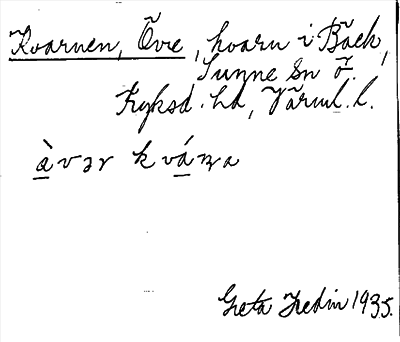 Kvarnen, Övre, kvarn i Bäck,
Sunne sn Ö.
Fryksd. hd, Värml. l.
àvər kvána
Greta Hedin 1935.